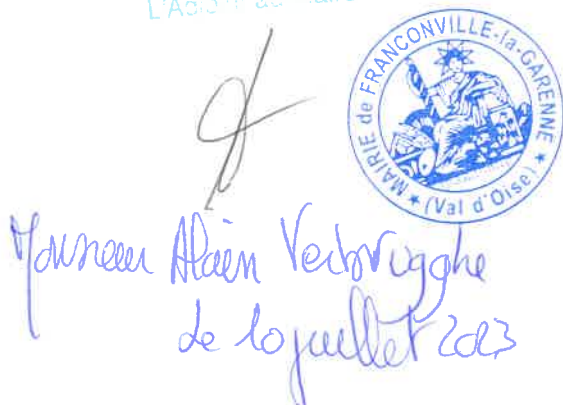 L'Adjoint au Maire
MAIRIE de FRANCONVILLE-la-GARENNE
★ (Val d'Oise) ★
Monsieur Alain Verbrugghe
de 10 juillet 2023